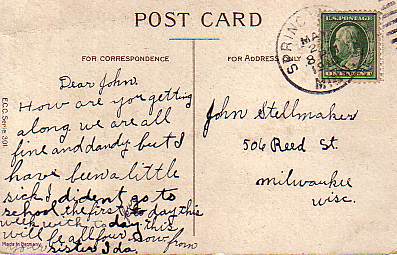 POST CARD
FOR CORRESPONDENCE
FOR ADDRESS ONLY
U.S. POSTAGE
ONE CENT
Dear John.
How are you getting
along we are all
fine and dandy but I
have been a little
sick I, did'ent go to
school the first to day this
week with to day this
will be all four. now from
sister Ida.
John Stellmaker
506 Reed St.
milwaukee
wisc.
E.C.C. Serie 301
Made in Germany